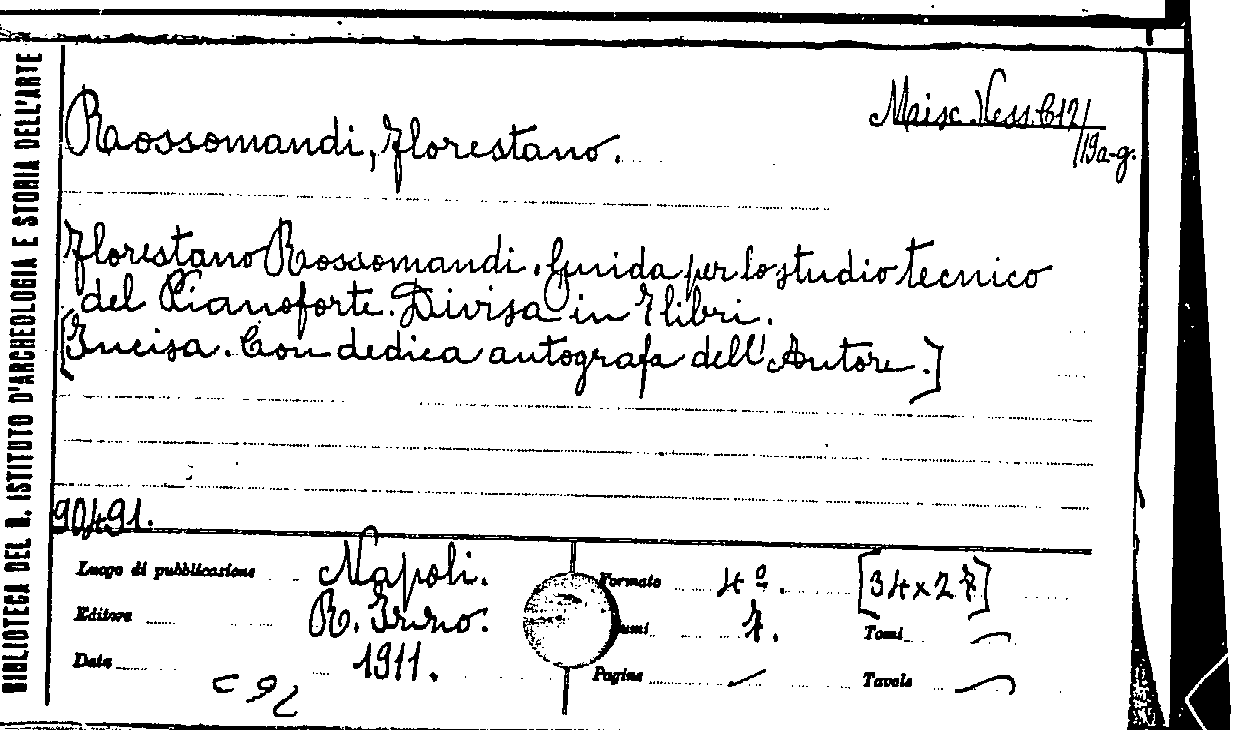 BIBLIOTECA DEL R. ISTITUTO D'ARCHEOLOGIA E STORIA DELL'ARTE
Maisc. Vess. C12/
/19a-g.
Rossomandi, Florestano.
Florestano Rossomandi. Guida per lo studio tecnico
del Pianoforte. Divisa in 7 libri.
[Incisa. Con dedica autografa dell'Autore.]
90491.
Luogo di pubblicazione Napoli. Formato 4º. [34x27]
Editore R. Izzo. umi 7. Tomi
Data 1911. Pagine Tavole